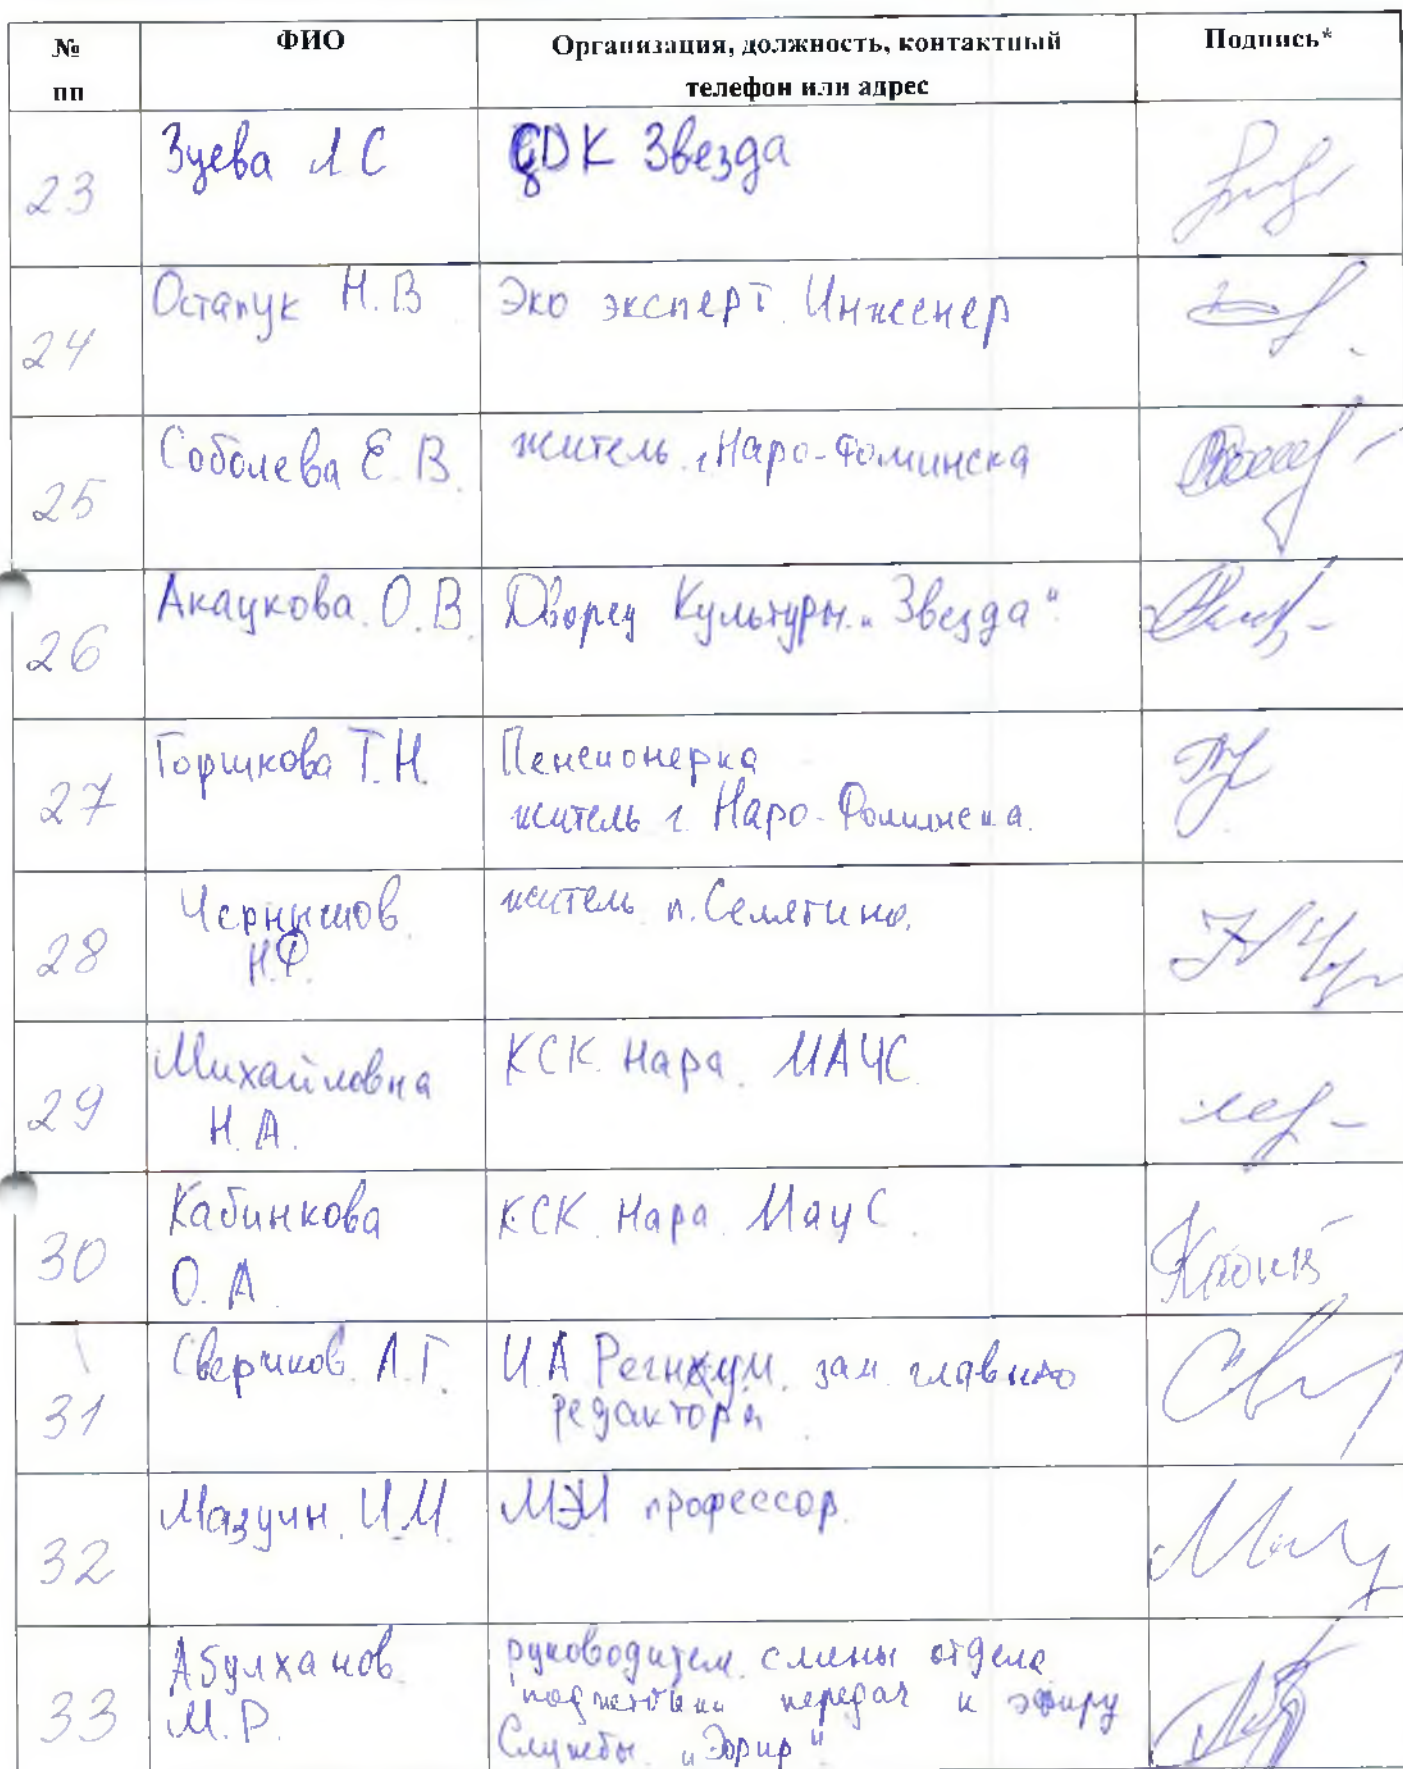 № пп ФИО Организация, должность, контактный телефон или адрес Подпись*
23 Зуева Л С ДК Звезда
24 Остапук Н.В Эко эксперт. Инженер
25 Соболева Е.В. житель г.Наро-Фоминска
26 Акаукова.О.В. Дворец Культуры "Звезда"
27 Горшкова Т.Н. Пенсионерка
житель г. Наро-Фоминска.
28 Чернышов житель п.Селятино.
Н.Ф.
29 Михайловна КСК. Нара. МАУС.
Н.А.
30 Кабинкова КСК. Нара. МауС.
О.А.
31 Сверчков. А.Г. И.А Регнхум. зам. главного
редактора
32 Мазучн. И.М. МЭИ профессор.
33 Абулханов руководитель смены отдела
М.Р. подготовки передач к эфиру
Службы "Эфир"